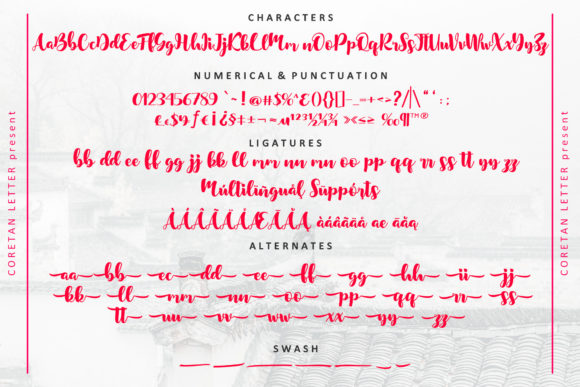 CORETAN LETTER present
CHARACTERS
AaBbCcDdEeFfGgHhIiJjKkLlMm nOoPpQqRrSsTtUuVvWwXxYyZz
NUMERICAL & PUNCTUATION
0123456789 `~!@#$%^&(){}[]-_=+<>?/|\“‘:;
LIGATURES
bb dd ee ff gg jj bb ll mm nn mn oo pp qq rr ss tt yy zz
Múltilíñguál Süppórts
ALTERNATES
aa bb cc dd ee ff gg hh ii jj
kk ll mm nn oo pp qq rr ss
tt uu vv ww xx yy zz
SWASH
CORETAN LETTER present